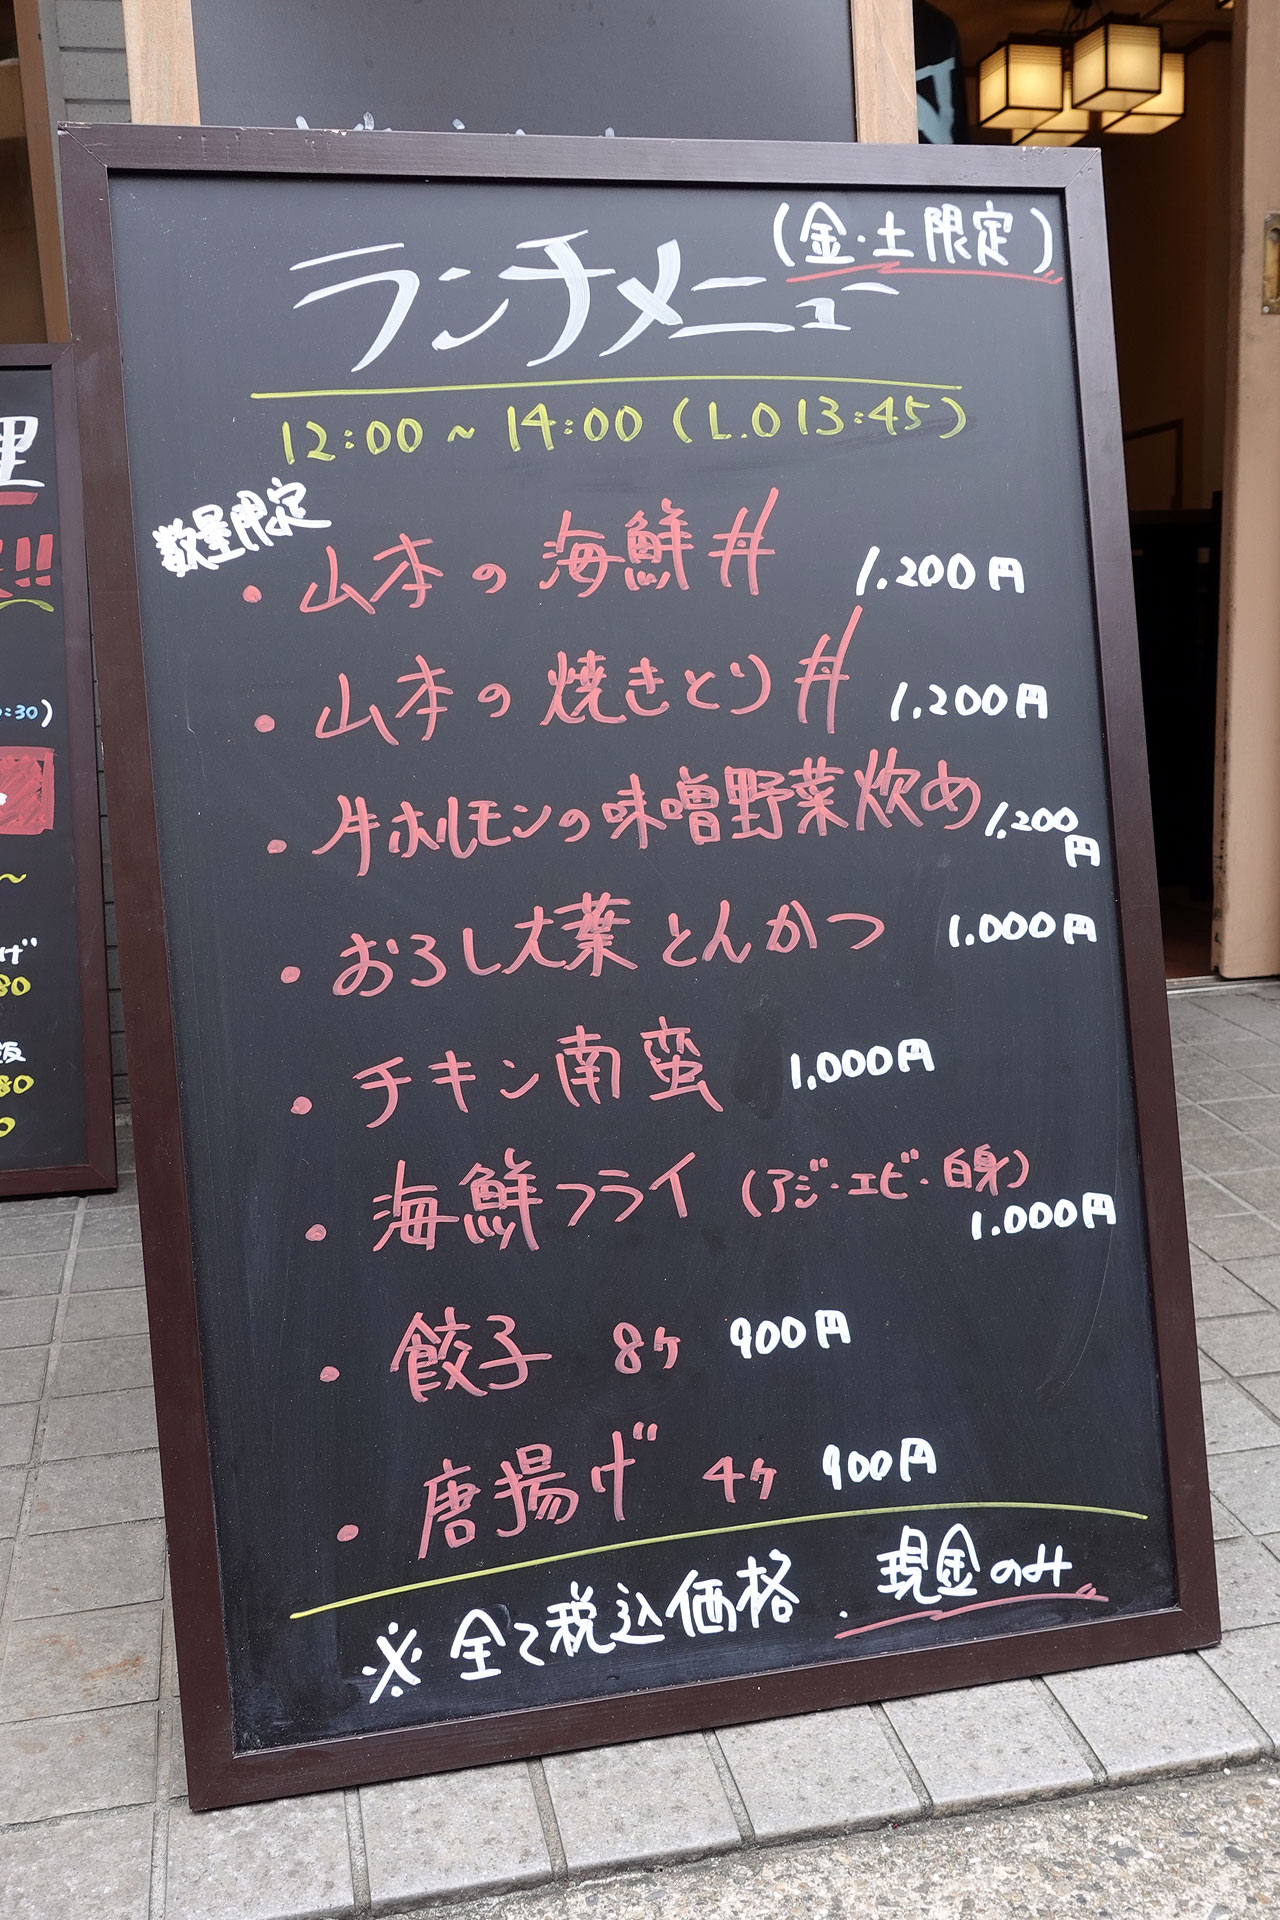 (金・土限定)
ランチメニュー
12:00 ~ 14:00 (L.O 13:45)
数量限定
・山本の海鮮丼 1.200円
・山本の焼きとり丼 1.200円
・牛ホルモンの味噌野菜炊め 1.200円
・おろし大葉とんかつ 1.000円
・チキン南蛮 1.000円
・海鮮フライ (アジ・エビ・白身)
1.000円
・餃子 8ヶ 900円
・唐揚げ 4ヶ 900円
※全て税込価格. 現金のみ
理
!!
:30)
~
げ
80
飯
80
0